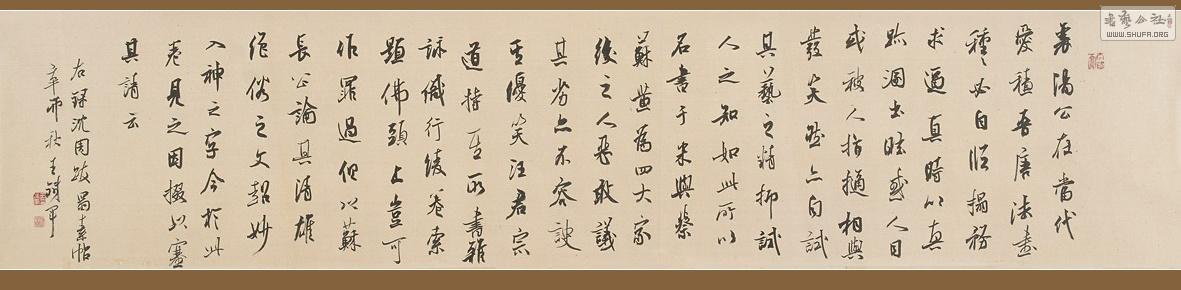 襄陽公在當代
愛積晉唐法書
種々必自臨搨務
求逼真時以真
跡溷出眩惑人目
或被人指擿相與
發笑然亦自試
其藝之精抑試
人之知如此所以
名書于米與蔡
蘇黃為四大家
後之人惡敢議
其劣亦不容諛
其優笑汪君宗
道持至所書雜
詠行綾卷索
題佛頭上豈可
作罪過但以蘇
長公論其清雄
絕俗之文超妙
入神之字今於此
卷見之因掇以塞
其請云
右錄沈周跋蜀素帖
辛卯秋
書藝公社
WWW.SHUFA.ORG